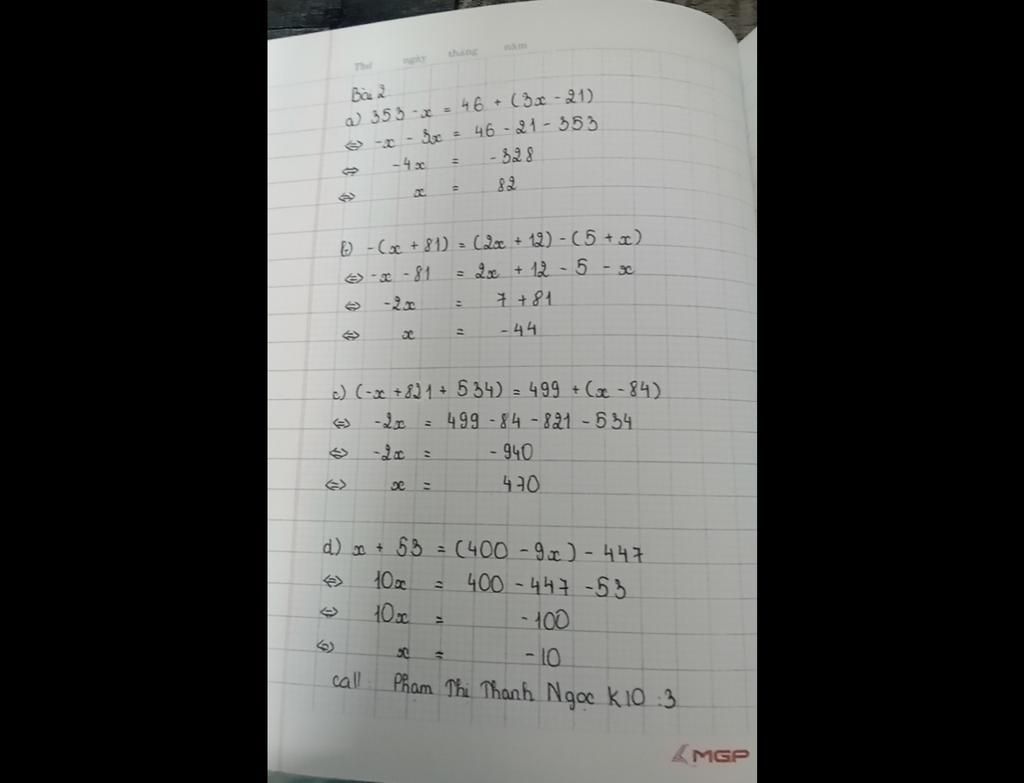 Thứ ngày tháng năm
Bài 2
a) 353 - x = 46 + (3x - 21)
⇔ -x - 3x = 46 - 21 - 353
⇔ -4x = -328
⇔ x = 82
b) -(x + 81) = (2x + 12) - (5 + x)
⇔ -x - 81 = 2x + 12 - 5 - x
⇔ -2x = 7 + 81
⇔ x = -44
c) (-x + 821 + 534) = 499 + (x - 84)
⇔ -2x = 499 - 84 - 821 - 534
⇔ -2x = -940
⇔ x = 470
d) x + 53 = (400 - 9x) - 447
⇔ 10x = 400 - 447 - 53
⇔ 10x = -100
⇔ x = -10
call Phạm Thị Thanh Ngọc K10 :3
MGP